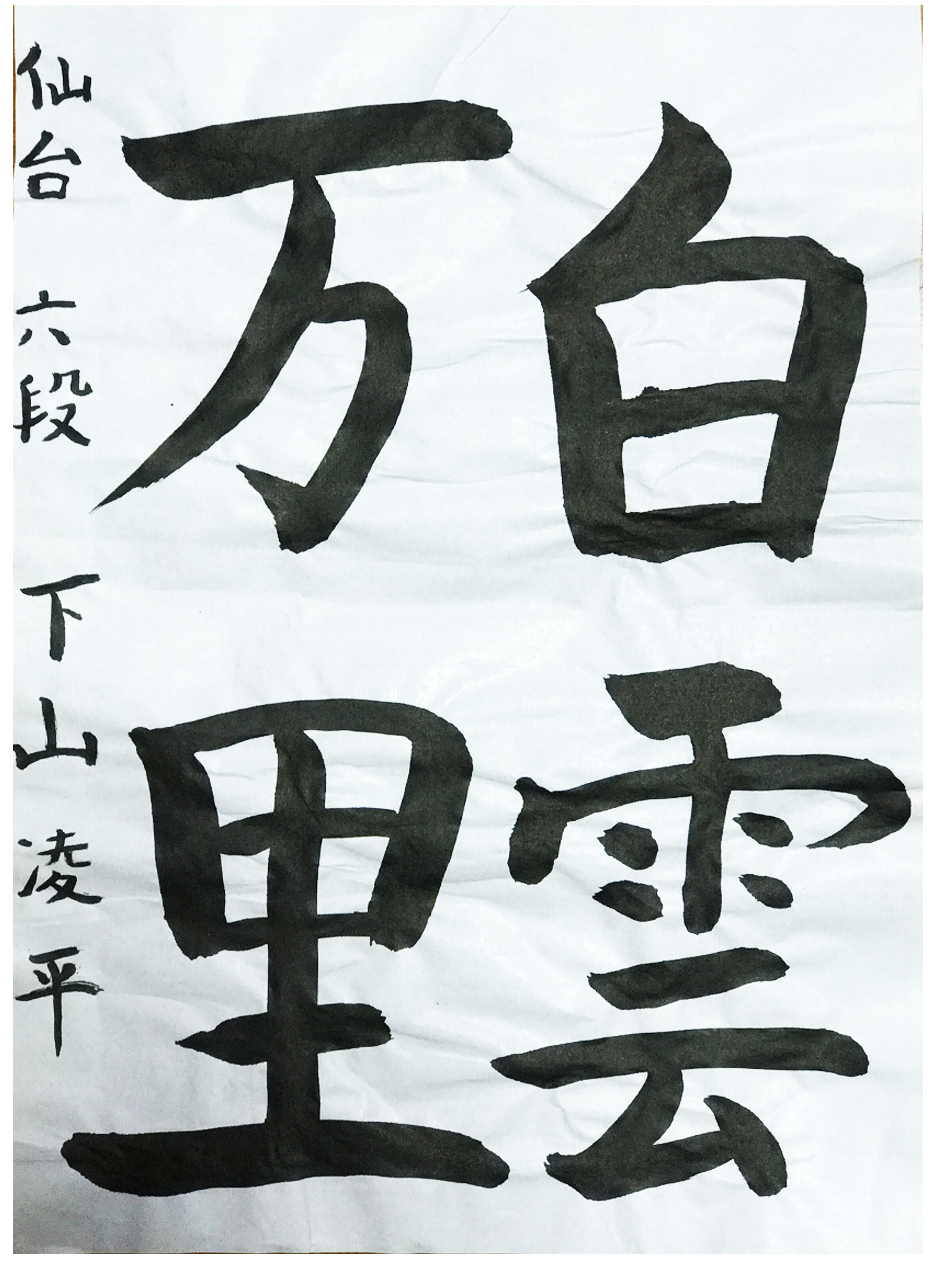 白雲
万里
仙台 六段 下山凌平